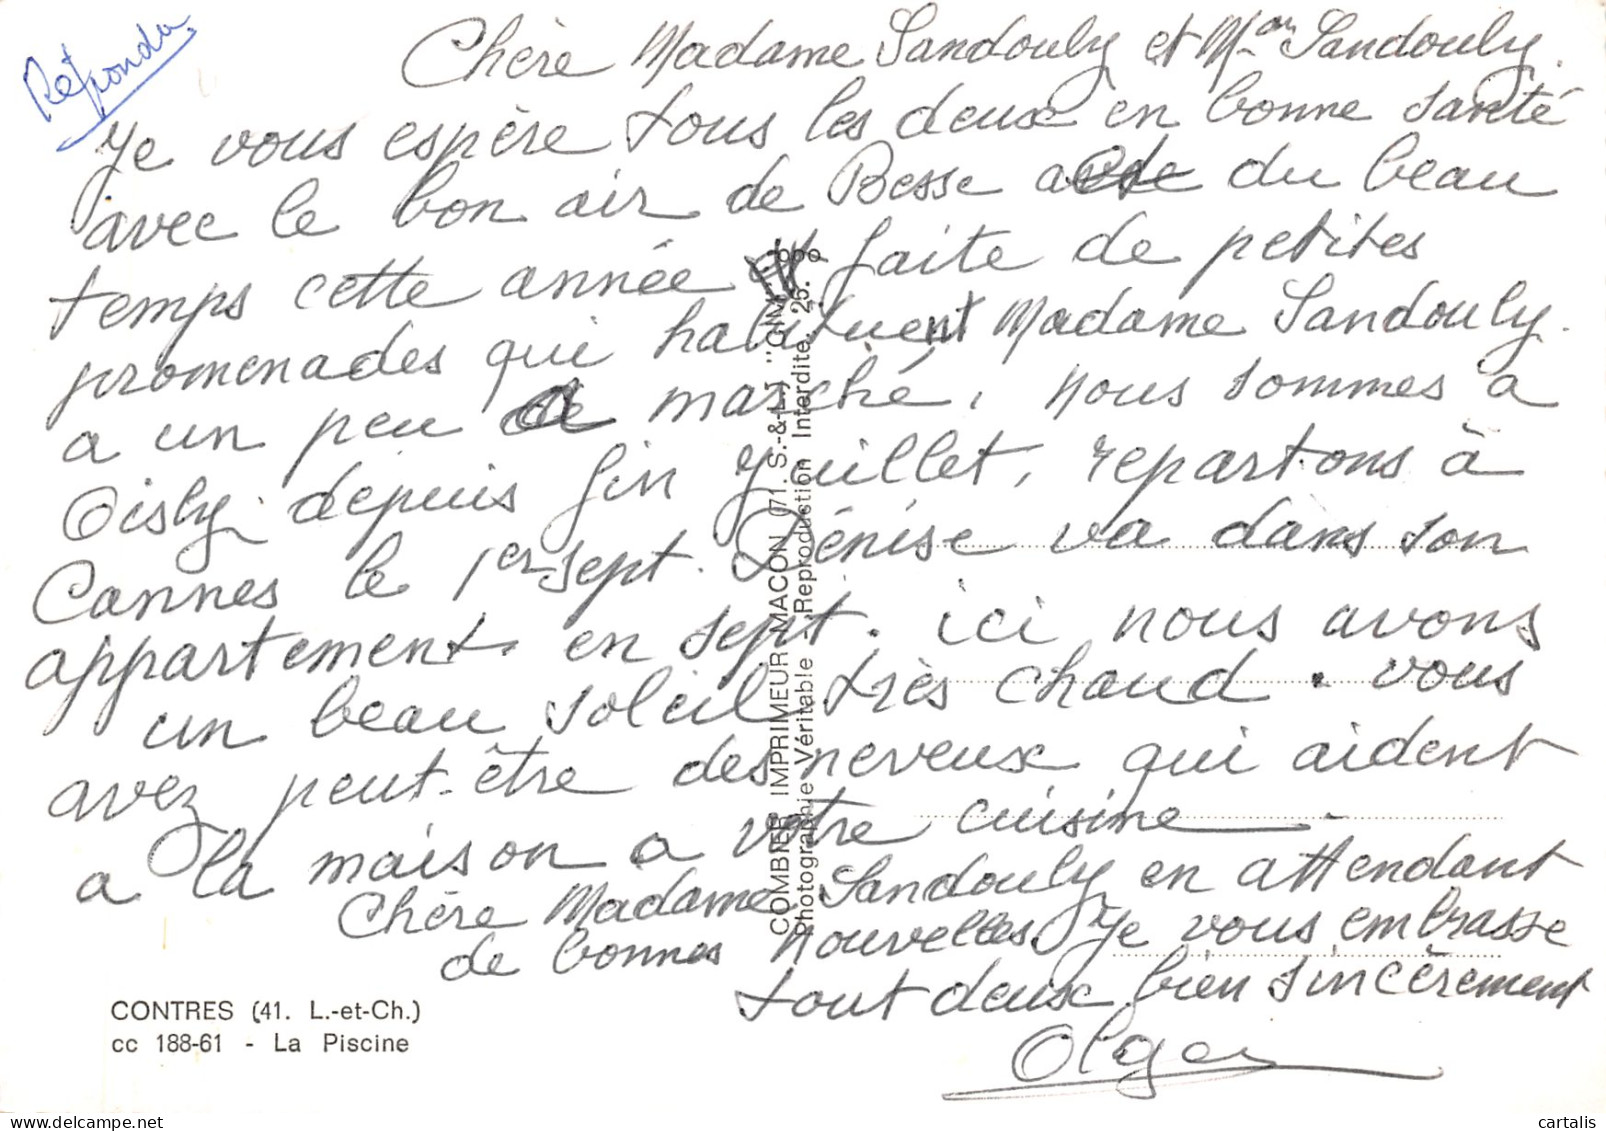 Répondu
Chère Madame Sandouly et M. Sandouly.
Je vous espère tous les deux en bonne santé
avec le bon air de Besse du beau
temps cette année faite de petites
promenades qui habituent Madame Sandouly.
a un peu marché, nous sommes a
Oisly depuis fin Juillet, repartons à
Cannes le 1er sept. Dénise va dans son
appartement en sept. ici nous avons
un beau soleil très chaud. vous
avez peut-être des neveux qui aident
a la maison a votre cuisine.
Chère Madame Sandouly en attendant
de bonnes nouvelles. Je vous embrasse
tout deux bien sincèrement
Olga
COMBIER IMPRIMEUR MACON (71. S.-&-L.) "CIM"
Photographie Véritable - Reproduction Interdite
CONTRES (41. L.-et-Ch.)
cc 188-61 - La Piscine
cartalis